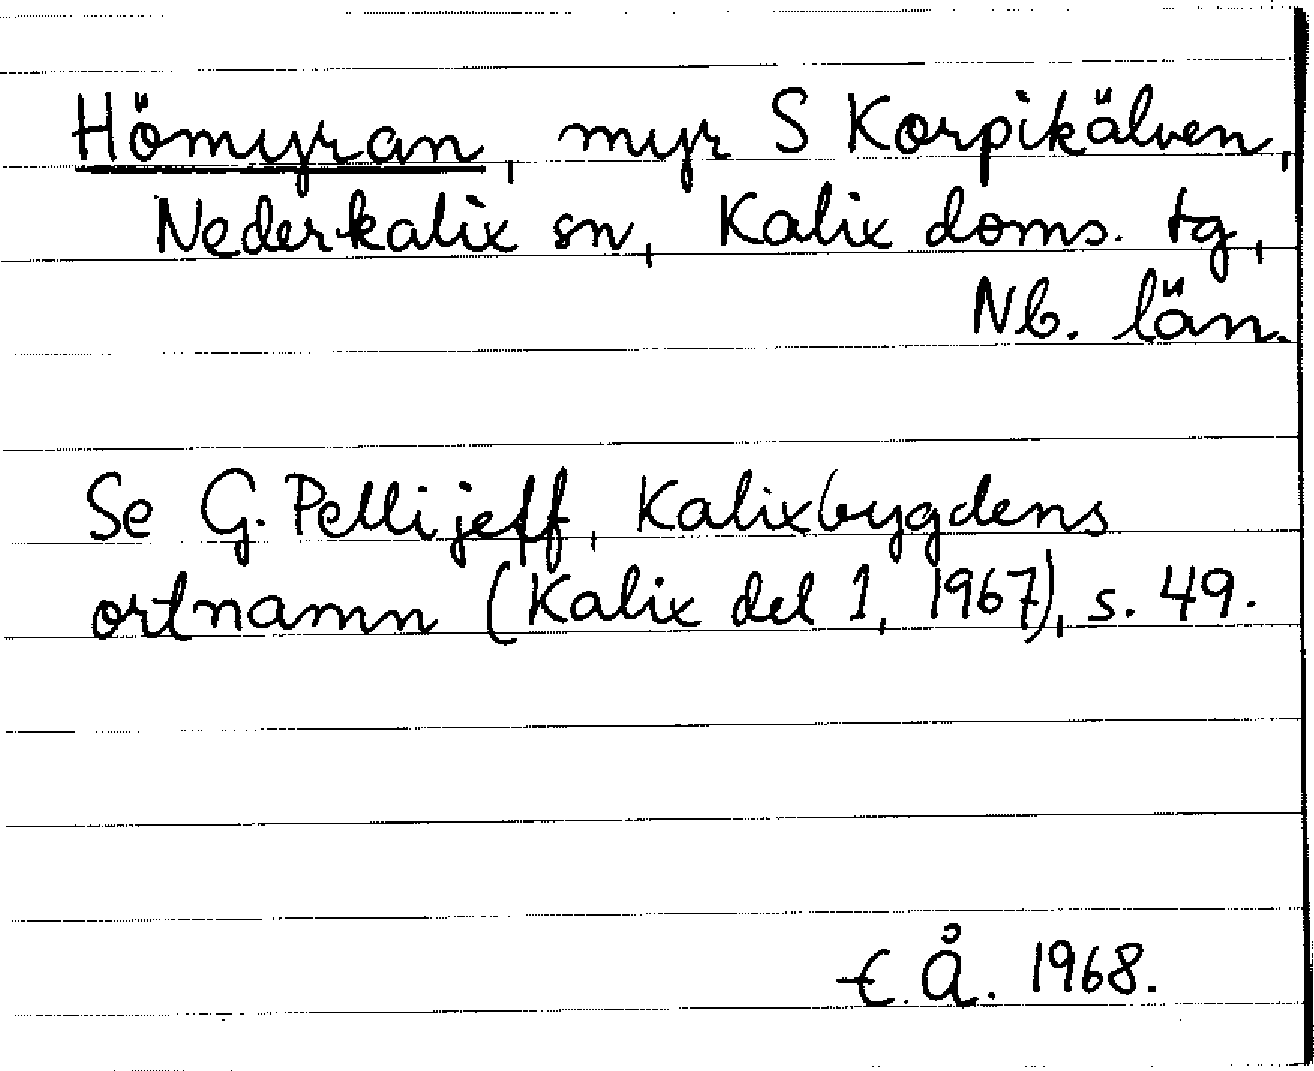 Hömyran, myr S Korpikälven,
Nederkalix sn, Kalix doms. tg,
Nb. län.
Se G. Pellijeff, Kalixbygdens
ortnamn (Kalix del 1, 1967), s. 49.
E. Å. 1968.